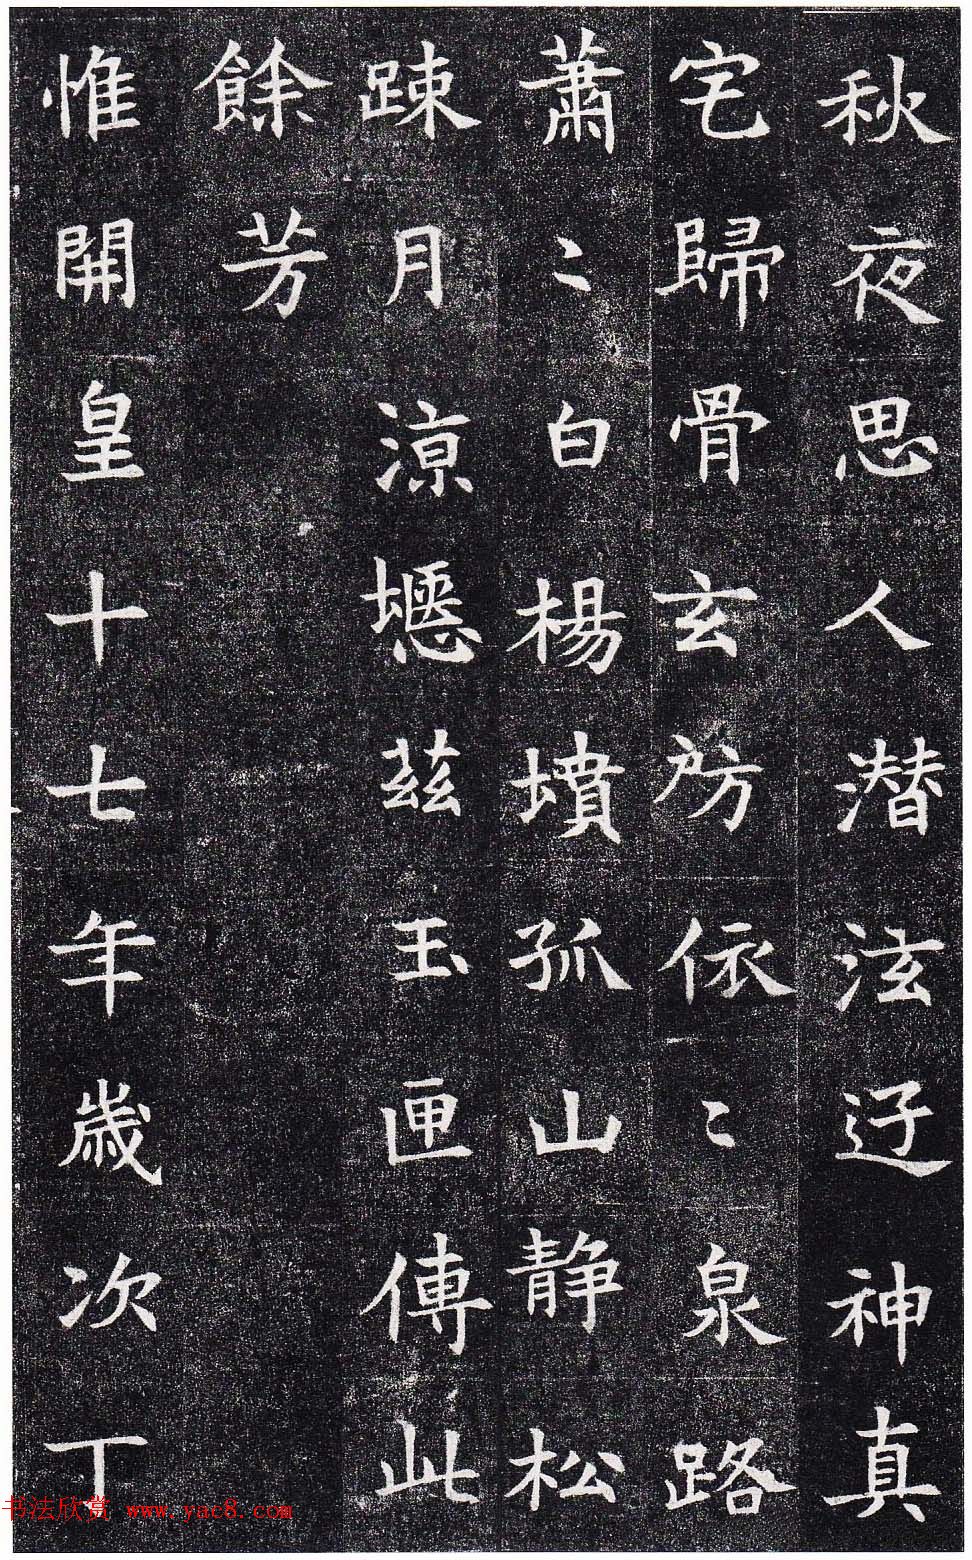 秋夜思人潜泫迂神真
宅歸骨玄房依〻泉路
蕭〻白楊墳孤山静松
踈月涼𡒄兹玉匣傳此
餘芳
惟開皇十七年歲次丁
书法欣赏 www.yac8.com